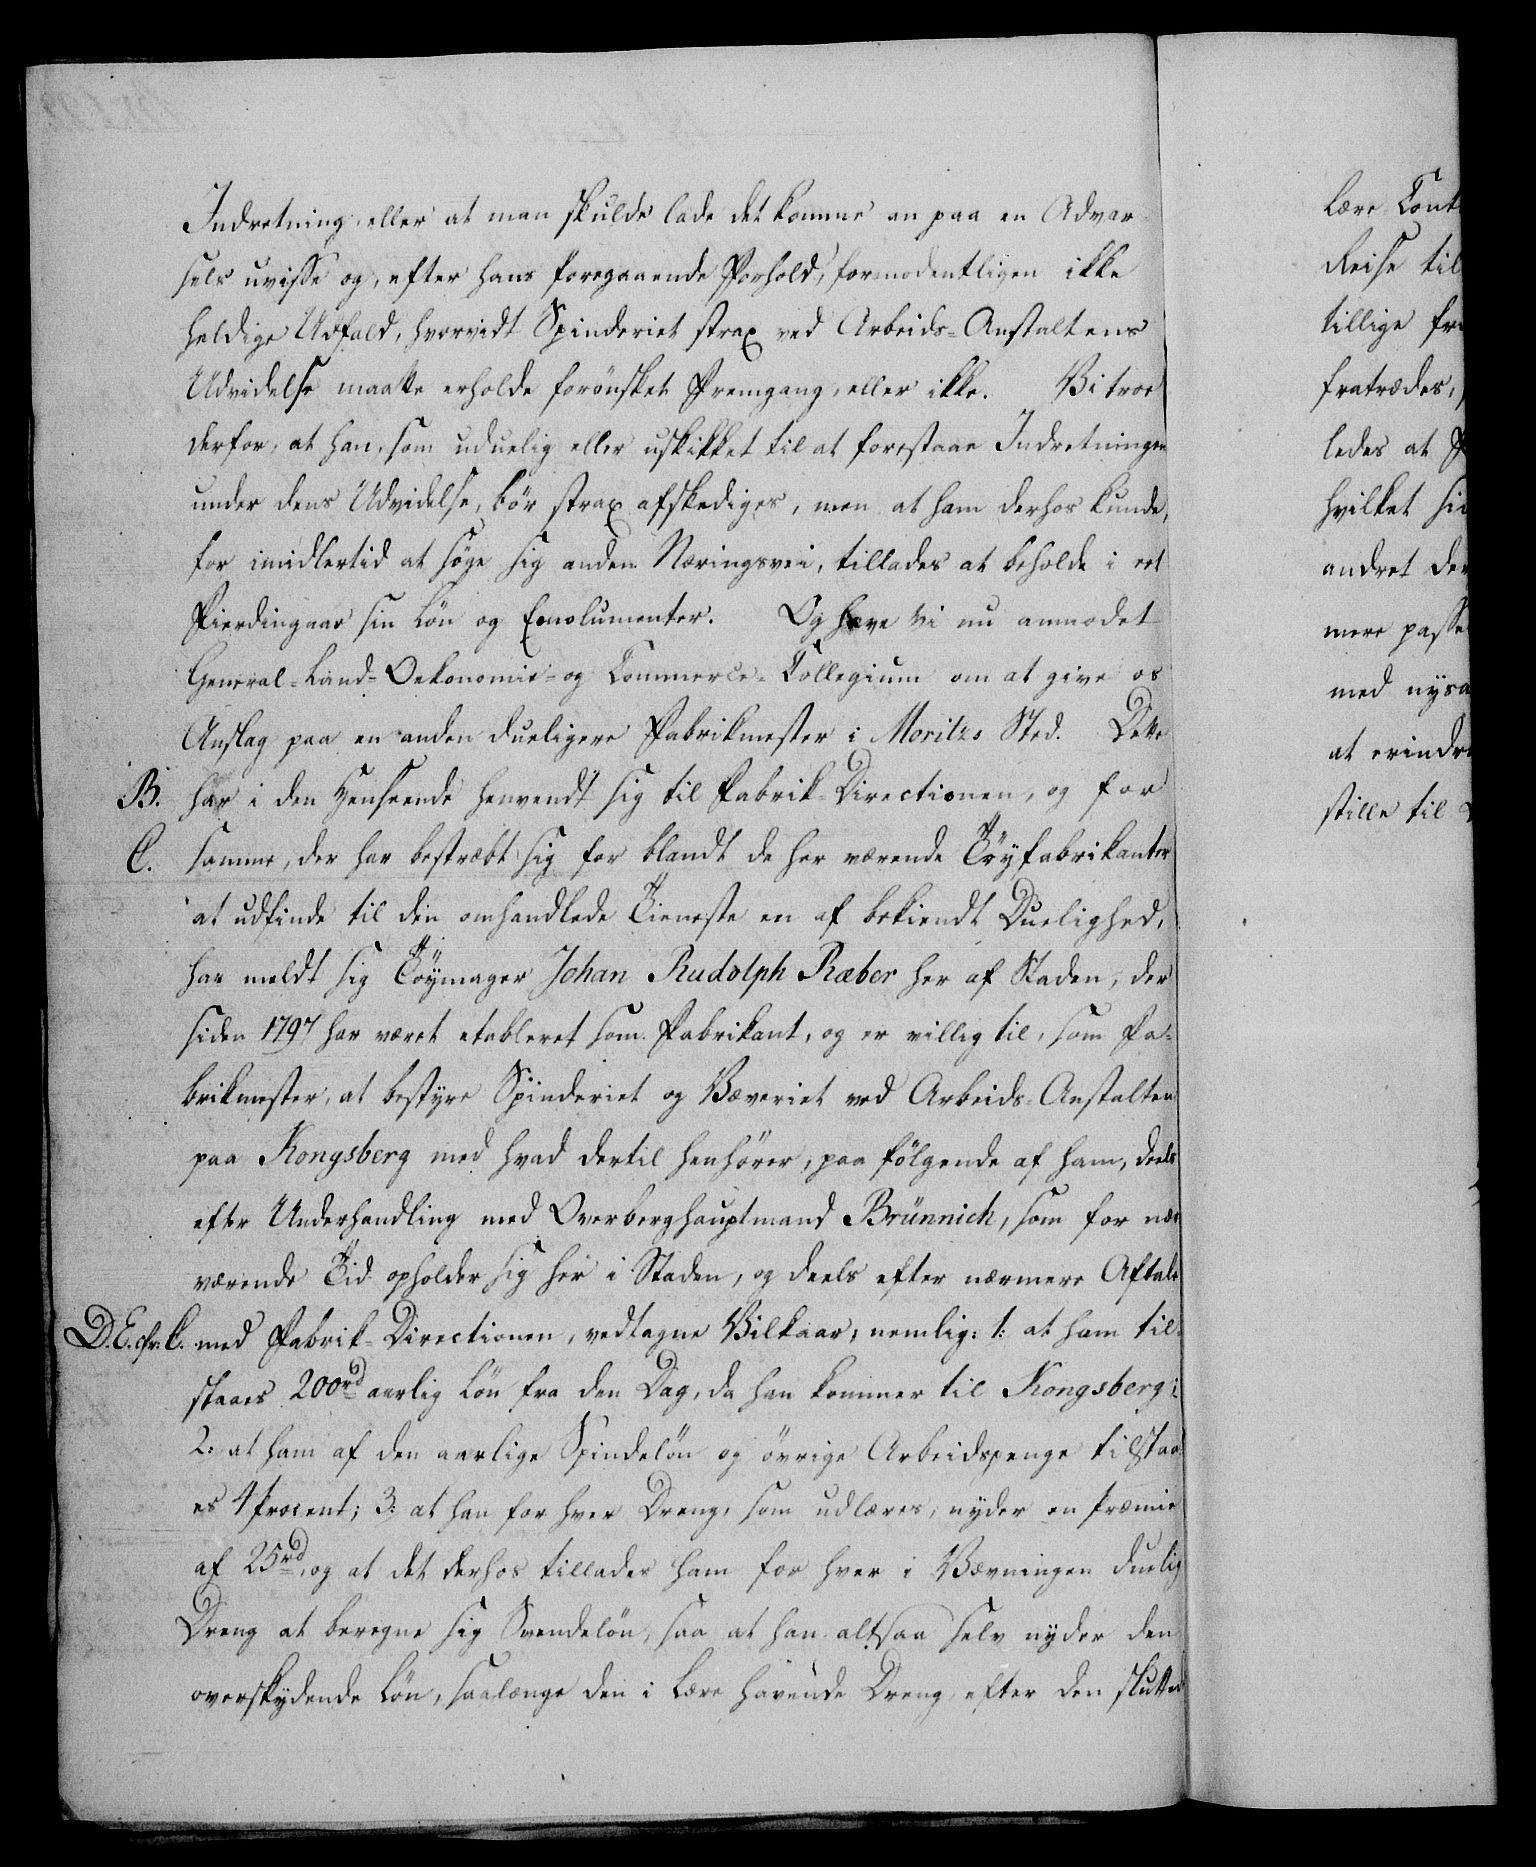 Indretning, eller at man skulde lade det komme an paa en Advar-
sels uvisse og, efter hans foregaaende Forhold, formodentligen ikke
heldige Udfald, hvorvidt Spinderiet strax ved Arbeids-Anstaltens
Udvidelse maatte erholde forönsket Fremgang, eller ikke. Vi troe
derfor, at han, som uduelig eller uskikket til at forestaae Indretningen
under dens Udvidelse, bör strax afskediges, men at ham derhos kunde,
for imidlertid at söge sig anden Næringsvei, tillades at beholde i et
Fierdingaar sin Lön og Emolumenter. Og have vi nu anmodet
General-Land-Oekonomie- og Commerce-Collegium om at give os
Anslag paa en anden dueligere Fabrikmester i Moritzs Sted. Dette
B. har i den Henseende henvendt sig til Fabrik-Directionen, og for
C. samme, der har bestræbt sig for blandt de her værende Töyfabrikanter
at udfinde til den omhandlede Tieneste en af bekiendt Duelighed,
har meldt sig Töymager Johan Rudolph Ræber her af Staden, der
siden 1797 har været etableret som Fabrikant, og er villig til, som Fa-
brikmester, at bestyre Spinderiet og Væveriet ved Arbeids-Anstalten
paa Kongsberg med hvad dertil henhörer, paa fölgende af ham, deels
efter Underhandling med Overberghauptmand Brünnich, som for nær-
værende Tid opholder sig her i Staden, og deels efter nærmere Aftale
D. E. cfr. C. med Fabrik-Directionen, vedtagne Vilkaar, nemlig: 1: at ham til-
staaes 200 rd aarlig Lön fra den Dag, da han kommer til Kongsberg;
2: at ham af den aarlige Spindelön og övrige Arbeidspenge tilstaa-
es 4 Procent; 3: at han for hver Dreng, som udlæres, nyder en Præmie
af 25 rd, og at det derhos tillades ham for hver i Vævningen duelig
Dreng at beregne sig Svendelön, saa at han altsaa selv nyder den
overskydende Lön, saalænge den i Lære havende Dreng efter den sluttede
Lære Cont
Reise til
tillige fr
fratrædes,
ledes at
hvilket si
andret de
mere passe
med nysa
at erindr
stille til